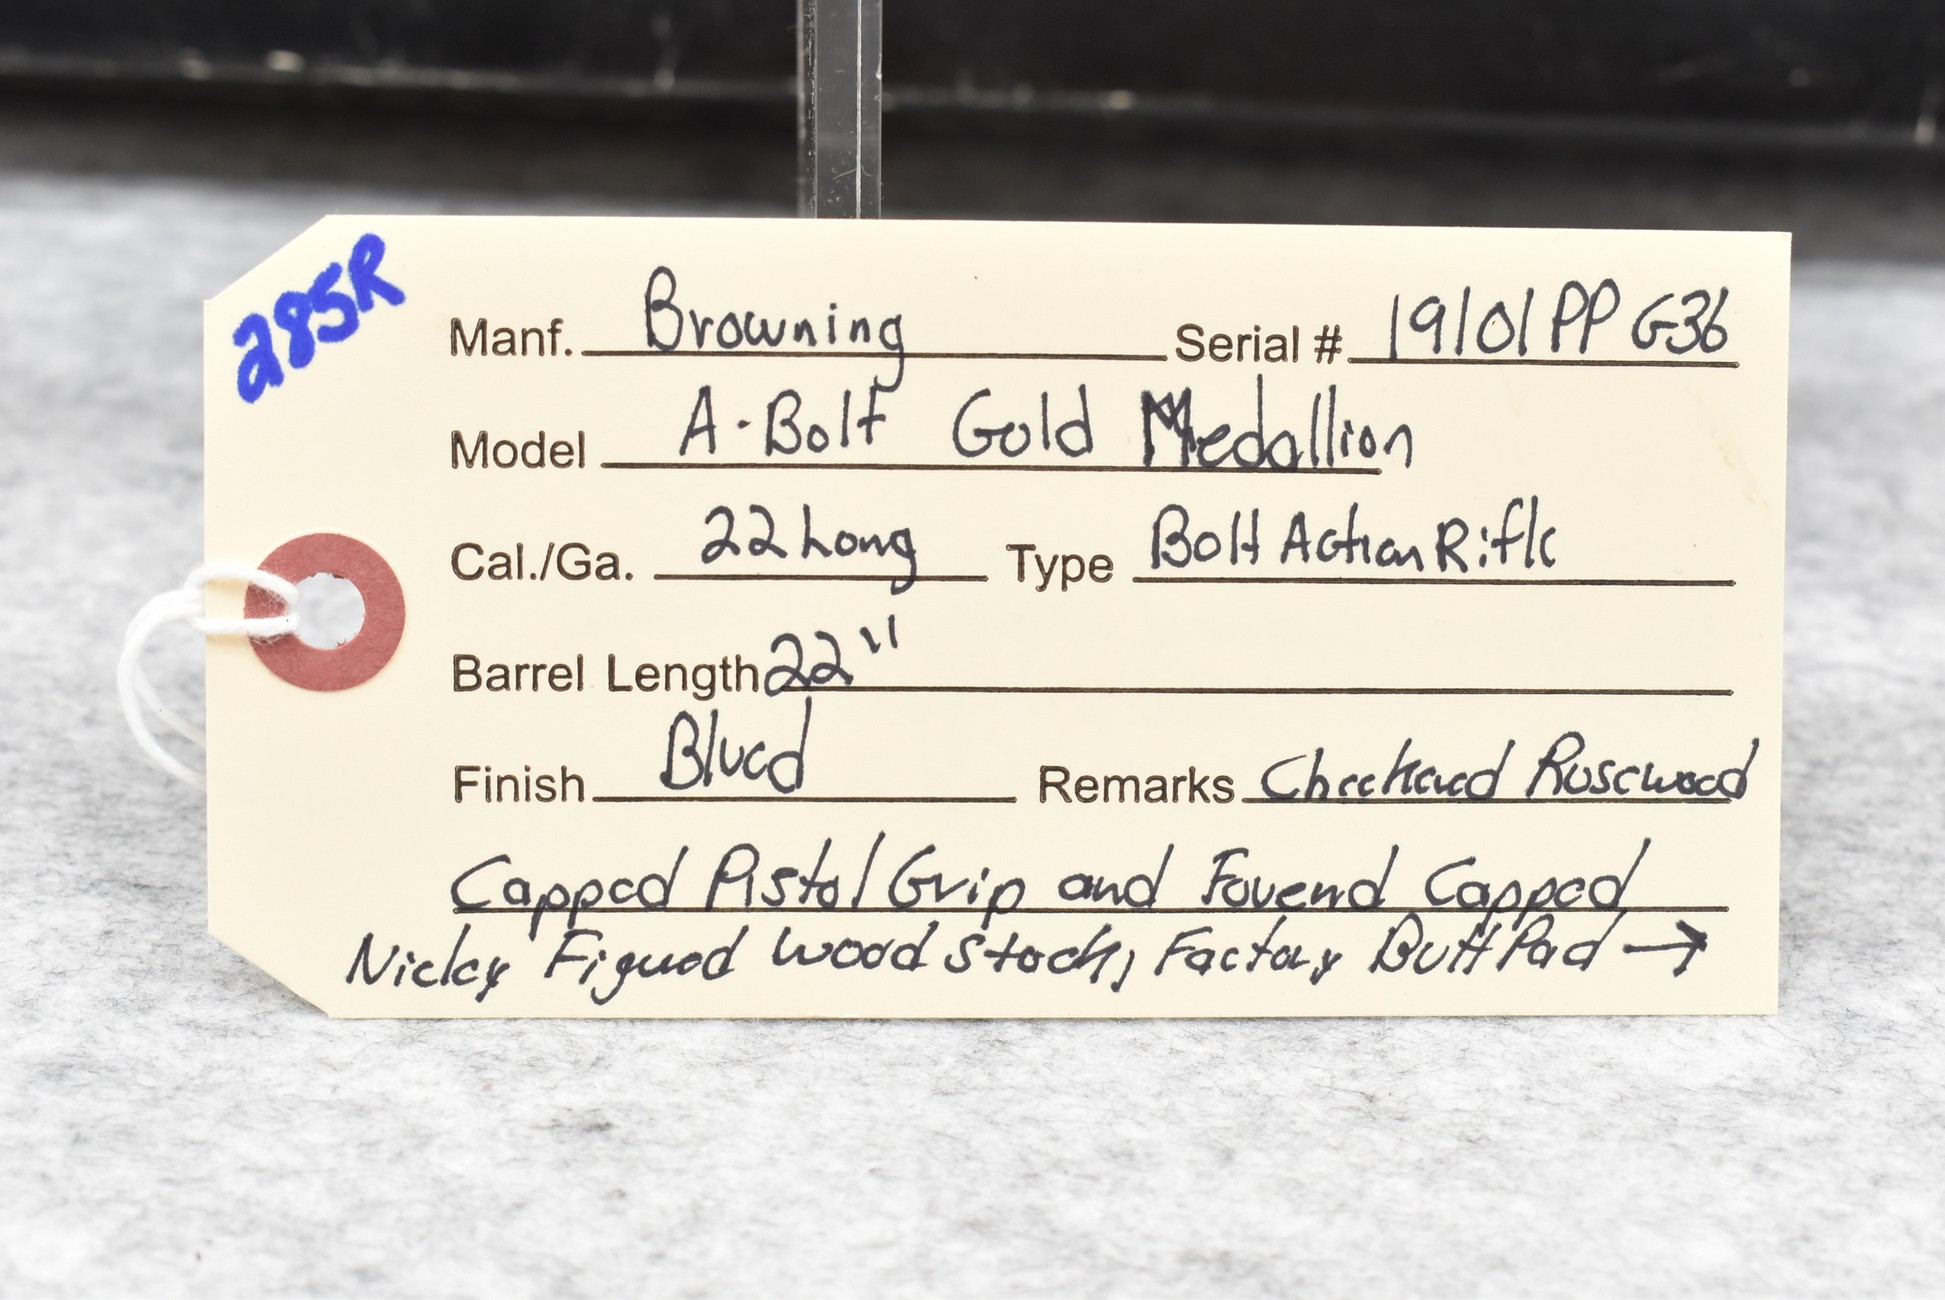 285R
Manf. Browning Serial # 19101PPG36
Model A-Bolt Gold Medallion
Cal./Ga. 22 Long Type Bolt Action Rifle
Barrel Length 22"
Finish Blued Remarks Checkered Rosewood
Capped Pistol Grip and Forend Capped
Nicley Figured Wood Stock, Factory Butt Pad →